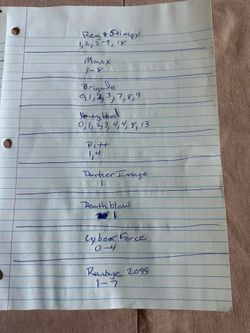 Ren & Stimpy
1, 3, 5-9, 18
Maxx
1-8
Brigade
0, 1, 2, 3, 7, 8, 9
Youngblood
0, 1, 2, 3, 4, 4, 8, 13
Pitt
1, 4
Darker Image
1
Deathblow
1
Cyber Force
0-4
Ravage 2099
1-7